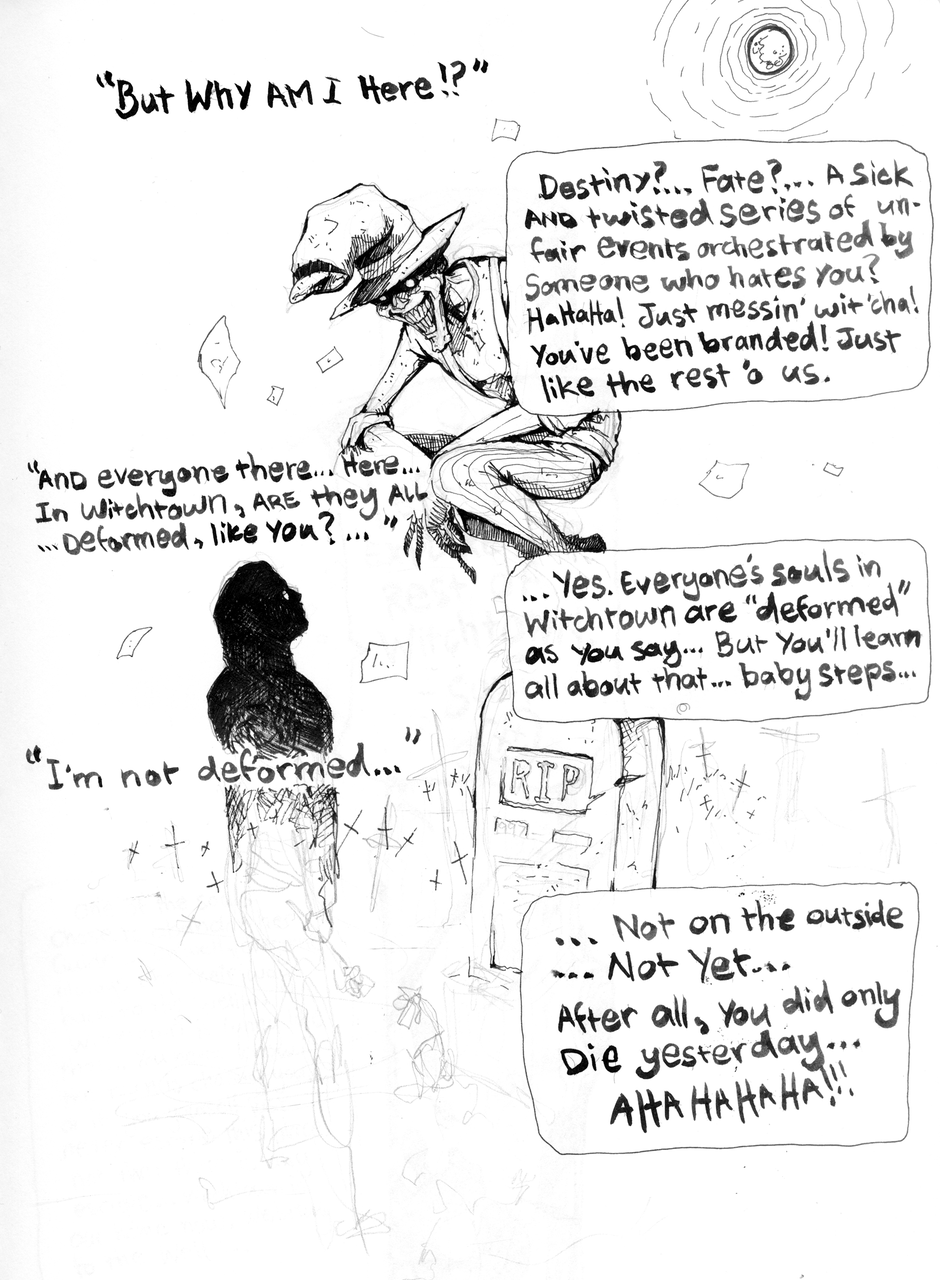 "But Why AM I Here!?"
Destiny?... Fate?... A Sick
AND twisted series of un-
fair events orchestrated by
Someone who hates you?
HaHaHa! Just messin' wit'cha!
You've been branded! Just
like the rest 'o us.
"AND everyone there... Here...
In Witchtown, ARE they ALL
...Deformed, like You?..."
...Yes. Everyone's souls in
Witchtown are "deformed"
as you say... But You'll learn
all about that... baby steps...
"I'm not deformed..."
RIP
... Not on the outside
... Not Yet...
After all, You did only
Die yesterday...
AHA HA HA HA!!!